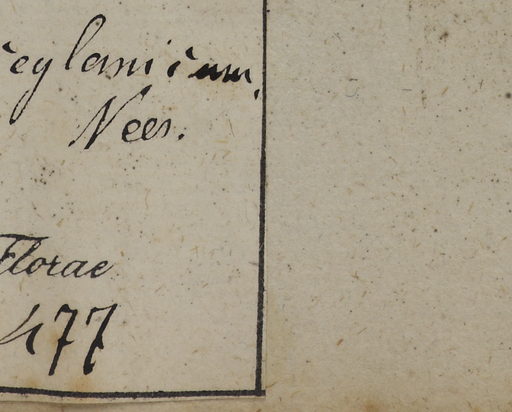 ceylanicum,
Nees.
Florae
477